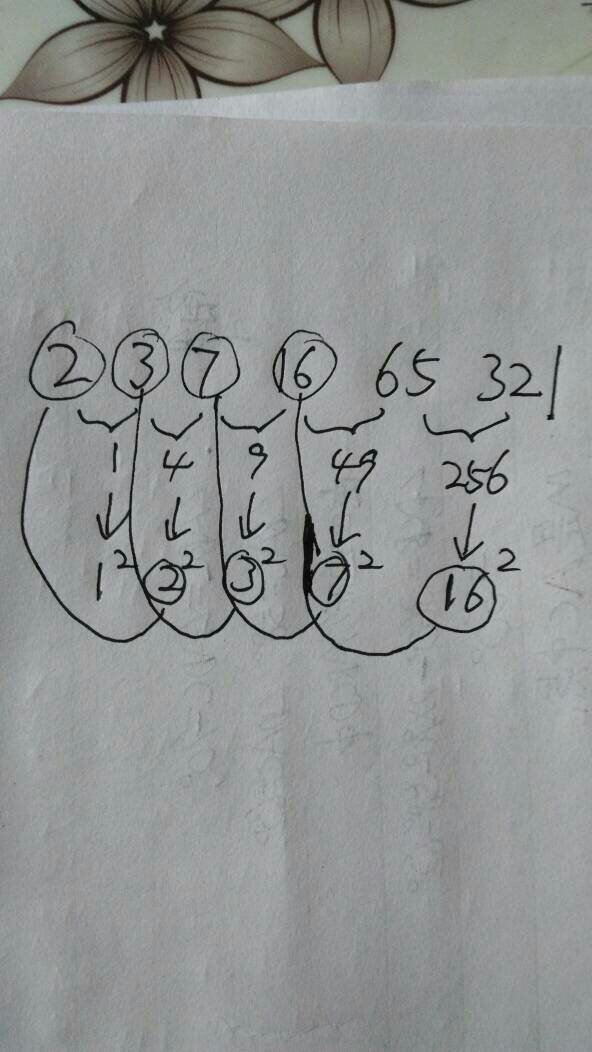 2 3 7 16 65 321
1 4 9 49 256
1² 2² 3² 7² 16²